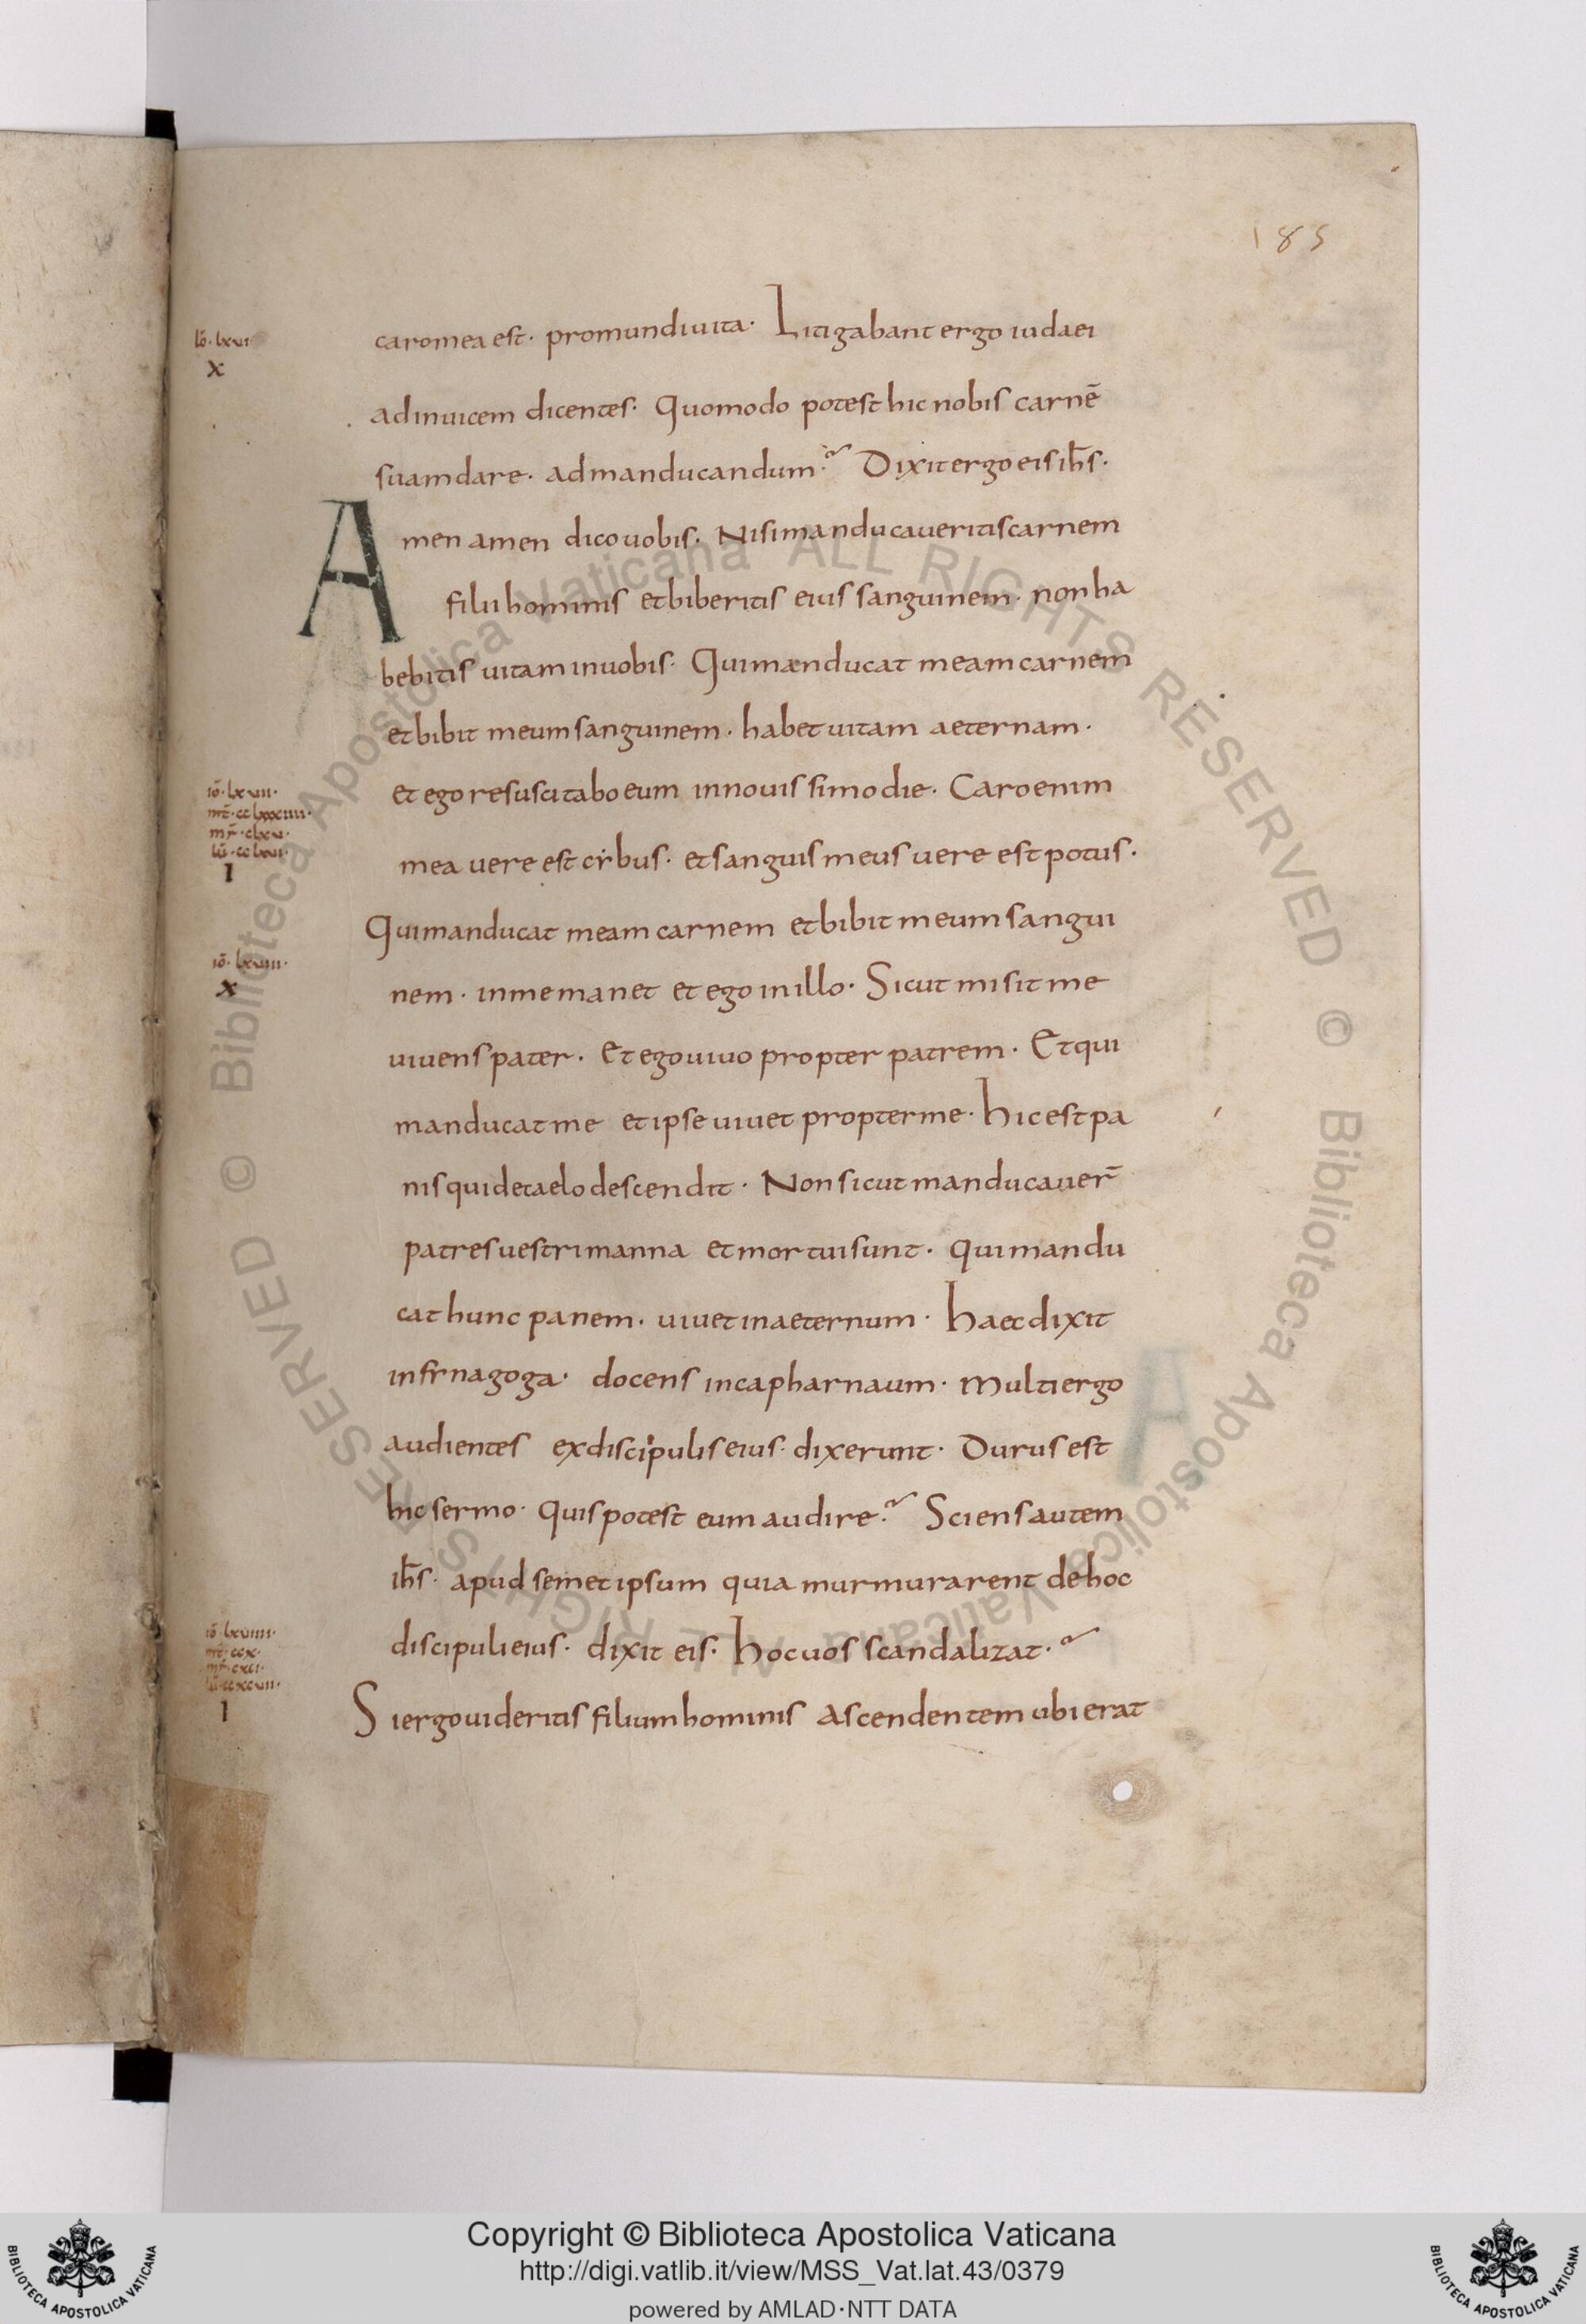 185
caro mea est· pro mundi uita· Litigabant ergo iudaei
ad inuicem dicentes· Quomodo potest hic nobis carnē
suam dare· ad manducandum? Dixit ergo eis ih̄s·
Amen amen dico uobis· Nisi manducaueritis carnem
filii hominis et biberitis eius sanguinem· non ha
bebitis uitam in uobis· Qui manducat meam carnem
et bibit meum sanguinem· habet uitam aeternam·
et ego resuscitabo eum in nouissimo die· Caro enim
mea uere est cybus· et sanguis meus uere est potus·
Qui manducat meam carnem et bibit meum sangui
nem· in me manet et ego in illo· Sicut misit me
uiuens pater· Et ego uiuo propter patrem· Et qui
manducat me et ipse uiuet propter me· hic est pa
nis qui de caelo descendit· Non sicut manducauer̄
patres uestri manna et mortui sunt· qui mandu
cat hunc panem· uiuet in aeternum· haec dixit
in synagoga· docens in capharnaum· Multi ergo
audientes ex discipulis eius· dixerunt· Durus est
hic sermo· quis potest eum audire? Sciens autem
ih̄s· apud semetipsum quia murmurarent de hoc
discipuli eius· dixit eis· hoc uos scandalizat?
Si ergo uideritis filium hominis ascendentem ubi erat
x
iō· lxvii·
i
iō· lxviii·
x
iō· lxviiii·
i
Copyright © Biblioteca Apostolica Vaticana
http://digi.vatlib.it/view/MSS_Vat.lat.43/0379
powered by AMLAD·NTT DATA
BIBLIOTECA APOSTOLICA VATICANA
BIBLIOTECA APOSTOLICA VATICANA
© Biblioteca Apostolica Vaticana ALL RIGHTS RESERVED © Biblioteca Apostolica Vaticana ALL RIGHTS RESERVED